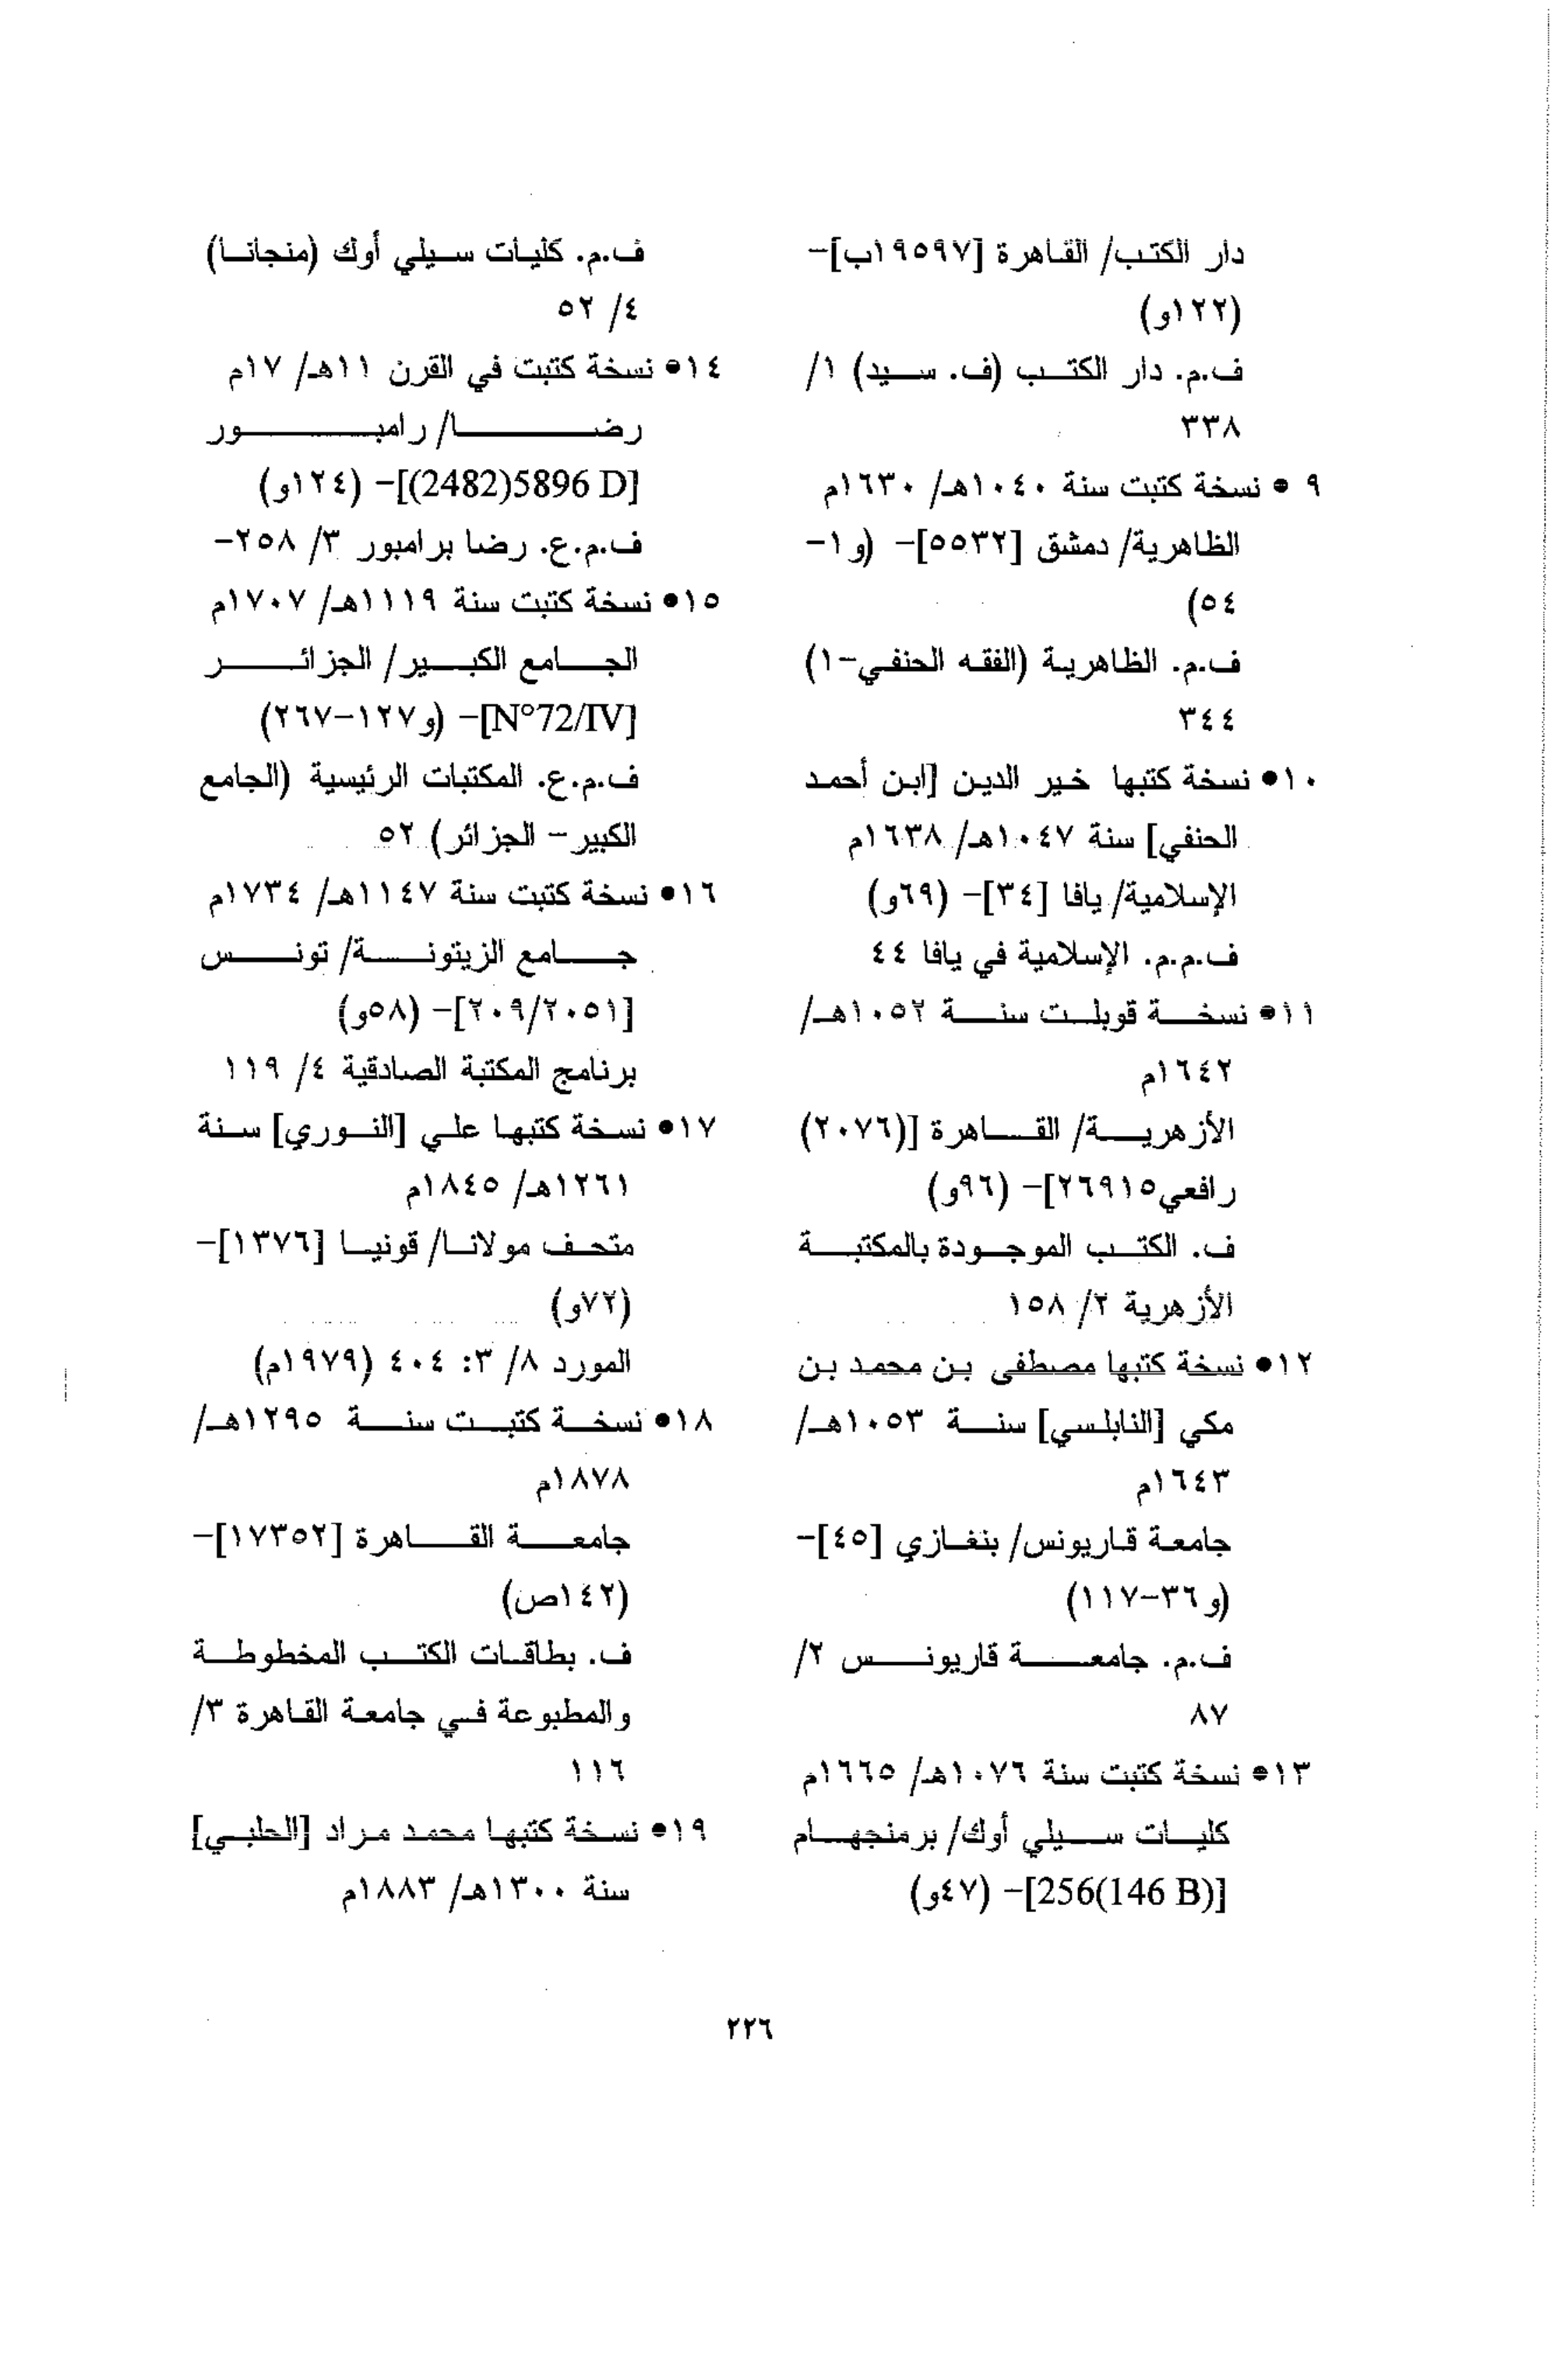 دار الكتب/ القاهرة [١٩٥٩٧ب]-
(١٢٢و)
ف.م. دار الكتب (ف. سيد) ١/
٣٣٨
٩ • نسخة كتبت سنة ١٠٤٠هـ/ ١٦٣٠م
الظاهرية/ دمشق [٥٥٣٢]- (و١-
٥٤)
ف.م. الظاهرية (الفقه الحنفي-١)
٣٤٤
١٠• نسخة كتبها خير الدين [ابن أحمد
الحنفي] سنة ١٠٤٧هـ/ ١٦٣٨م
الإسلامية/ يافا [٣٤]- (٦٩و)
ف.م.م. الإسلامية في يافا ٤٤
١١• نسخة قوبلت سنة ١٠٥٢هـ/
١٦٤٢م
الأزهرية/ القاهرة [(٢٠٧٦)
رافعي٢٦٩١٥]- (٩٦و)
ف. الكتب الموجودة بالمكتبة
الأزهرية ٢/ ١٥٨
١٢• نسخة كتبها مصطفى بن محمد بن
مكي [النابلسي] سنة ١٠٥٣هـ/
١٦٤٣م
جامعة قاريونس/ بنغازي [٤٥]-
(و٣٦-١١٧)
ف.م. جامعة قاريونس ٢/
٨٧
١٣• نسخة كتبت سنة ١٠٧٦هـ/ ١٦٦٥م
كليات سيلي أوك/ برمنجهام
[256(146 B)]- (٤٧و)
ف.م. كليات سيلي أوك (منجانا)
٤/ ٥٢
١٤• نسخة كتبت في القرن ١١هـ/ ١٧م
رضا/ رامبور
[(2482)5896 D]- (١٢٤و)
ف.م.ع. رضا برامبور ٣/ ٢٥٨-
١٥• نسخة كتبت سنة ١١١٩هـ/ ١٧٠٧م
الجامع الكبير/ الجزائر
[N°72/IV]- (و١٢٧-٢٦٧)
ف.م.ع. المكتبات الرئيسية (الجامع
الكبير- الجزائر) ٥٢
١٦• نسخة كتبت سنة ١١٤٧هـ/ ١٧٣٤م
جامع الزيتونة/ تونس
[٢٠٩/٢٠٥١]- (٥٨و)
برنامج المكتبة الصادقية ٤/ ١١٩
١٧• نسخة كتبها علي [النوري] سنة
١٢٦١هـ/ ١٨٤٥م
متحف مولانا/ قونيا [١٣٧٦]-
(٧٢و)
المورد ٨/ ٣: ٤٠٤ (١٩٧٩م)
١٨• نسخة كتبت سنة ١٢٩٥هـ/
١٨٧٨م
جامعة القاهرة [١٧٣٥٢]-
(١٤٢ص)
ف. بطاقات الكتب المخطوطة
والمطبوعة في جامعة القاهرة ٣/
١١٦
١٩• نسخة كتبها محمد مراد [الحلبي]
سنة ١٣٠٠هـ/ ١٨٨٣م
٢٢٦